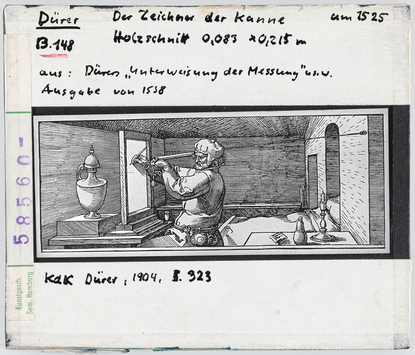 Dürer Der Zeichner der Kanne um 1525
B.148 Holzschnitt 0,083 x 0,215 m
aus: Dürers „Unterweisung der Messung" usw.
Ausgabe von 1538
58560-
Kunstgesch.
Sem. Hamburg
KdK Dürer, 1904, S. 323